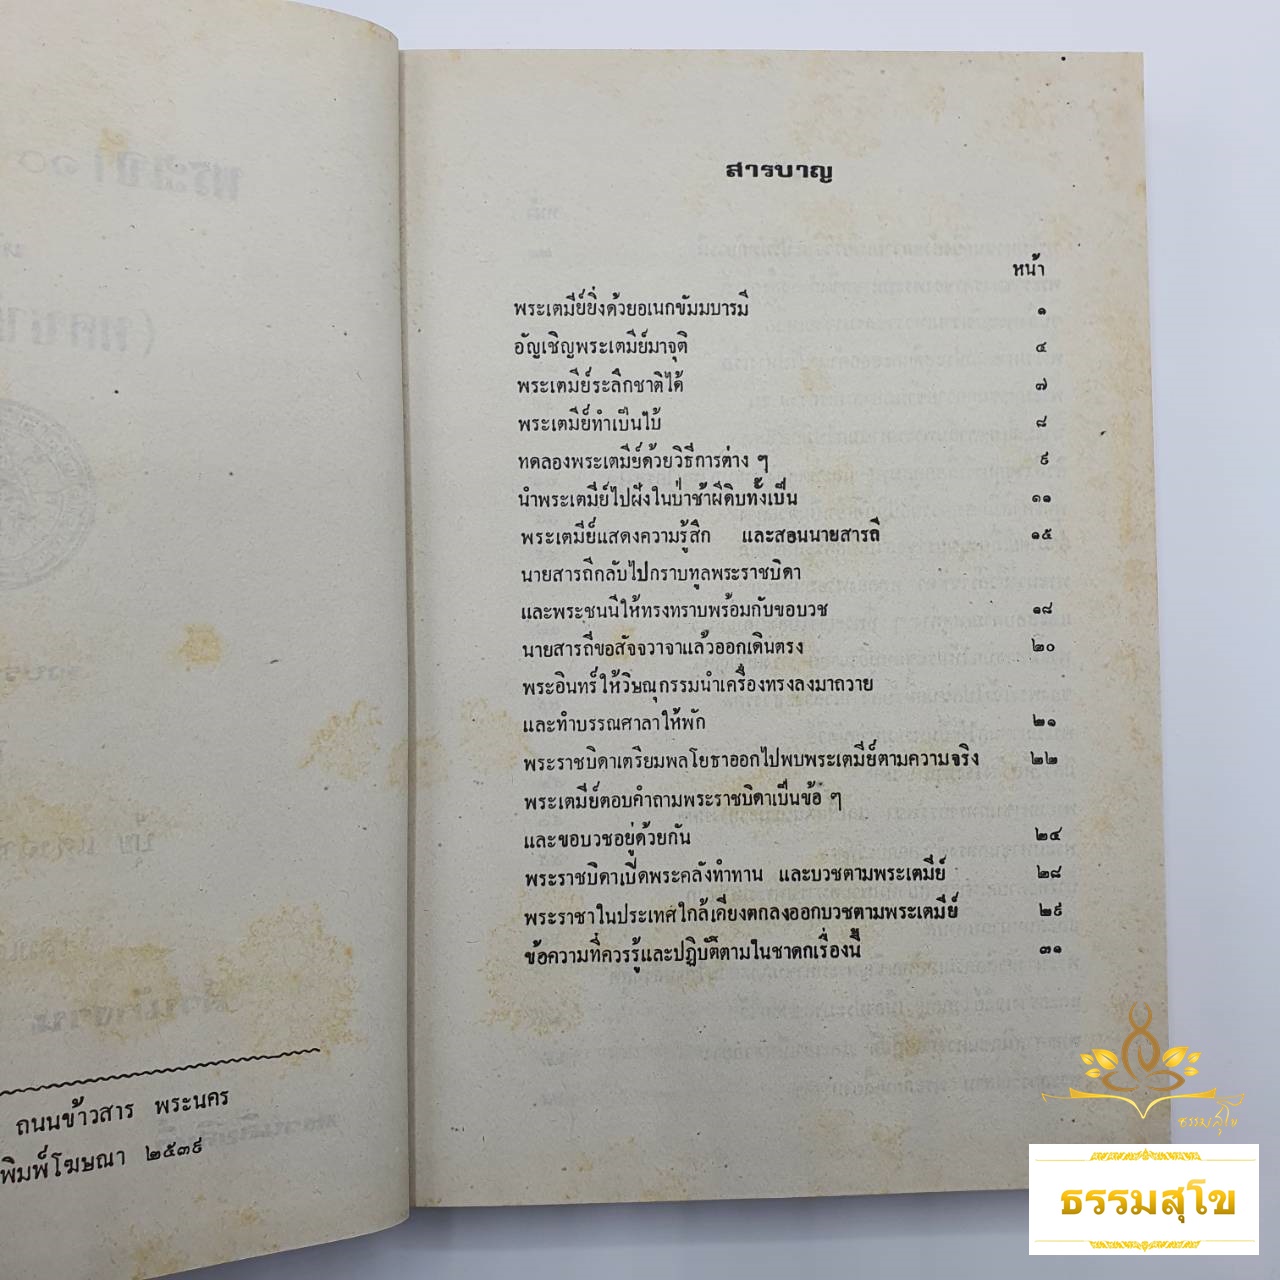 สารบาญ
หน้า
พระเตมีย์ยิ่งด้วยอเนกขัมมบารมี ๑
อัญเชิญพระเตมีย์มาจุติ ๔
พระเตมีย์ระลึกชาติได้ ๗
พระเตมีย์ทำเป็นไบ้ ๘
ทดลองพระเตมีย์ด้วยวิธีการต่าง ๆ ๙
นำพระเตมีย์ไปฝังในป่าช้าผีดิบทั้งเป็น ๑๑
พระเตมีย์แสดงความรู้สึก และสอนนายสารถี ๑๕
นายสารถีกลับไปกราบทูลพระราชบิดา
และพระชนนีให้ทรงทราบพร้อมกับขอบวช ๑๘
นายสารถีขอสัจจวาจาแล้วออกเดินตรง ๒๐
พระอินทร์ให้วิษณุกรรมนำเครื่องทรงลงมาถวาย
และทำบรรณศาลาให้พัก ๒๑
พระราชบิดาเตรียมพลโยธาออกไปพบพระเตมีย์ตามความจริง ๒๒
พระเตมีย์ตอบคำถามพระราชบิดาเป็นข้อ ๆ
และขอบวชอยู่ด้วยกัน ๒๔
พระราชบิดาเบิดพระคลังทำทาน และบวชตามพระเตมีย์ ๒๘
พระราชาในประเทศใกล้เคียงตกลงออกบวชตามพระเตมีย์ ๒๙
ข้อความที่ควรรู้และปฏิบัติตามในชาดกเรื่องนี้ ๓๑
ถนนข้าวสาร พระนคร
พิมพ์โฆษณา ๒๕๓๙
ธรรมสุโข
ธรรมสุโข